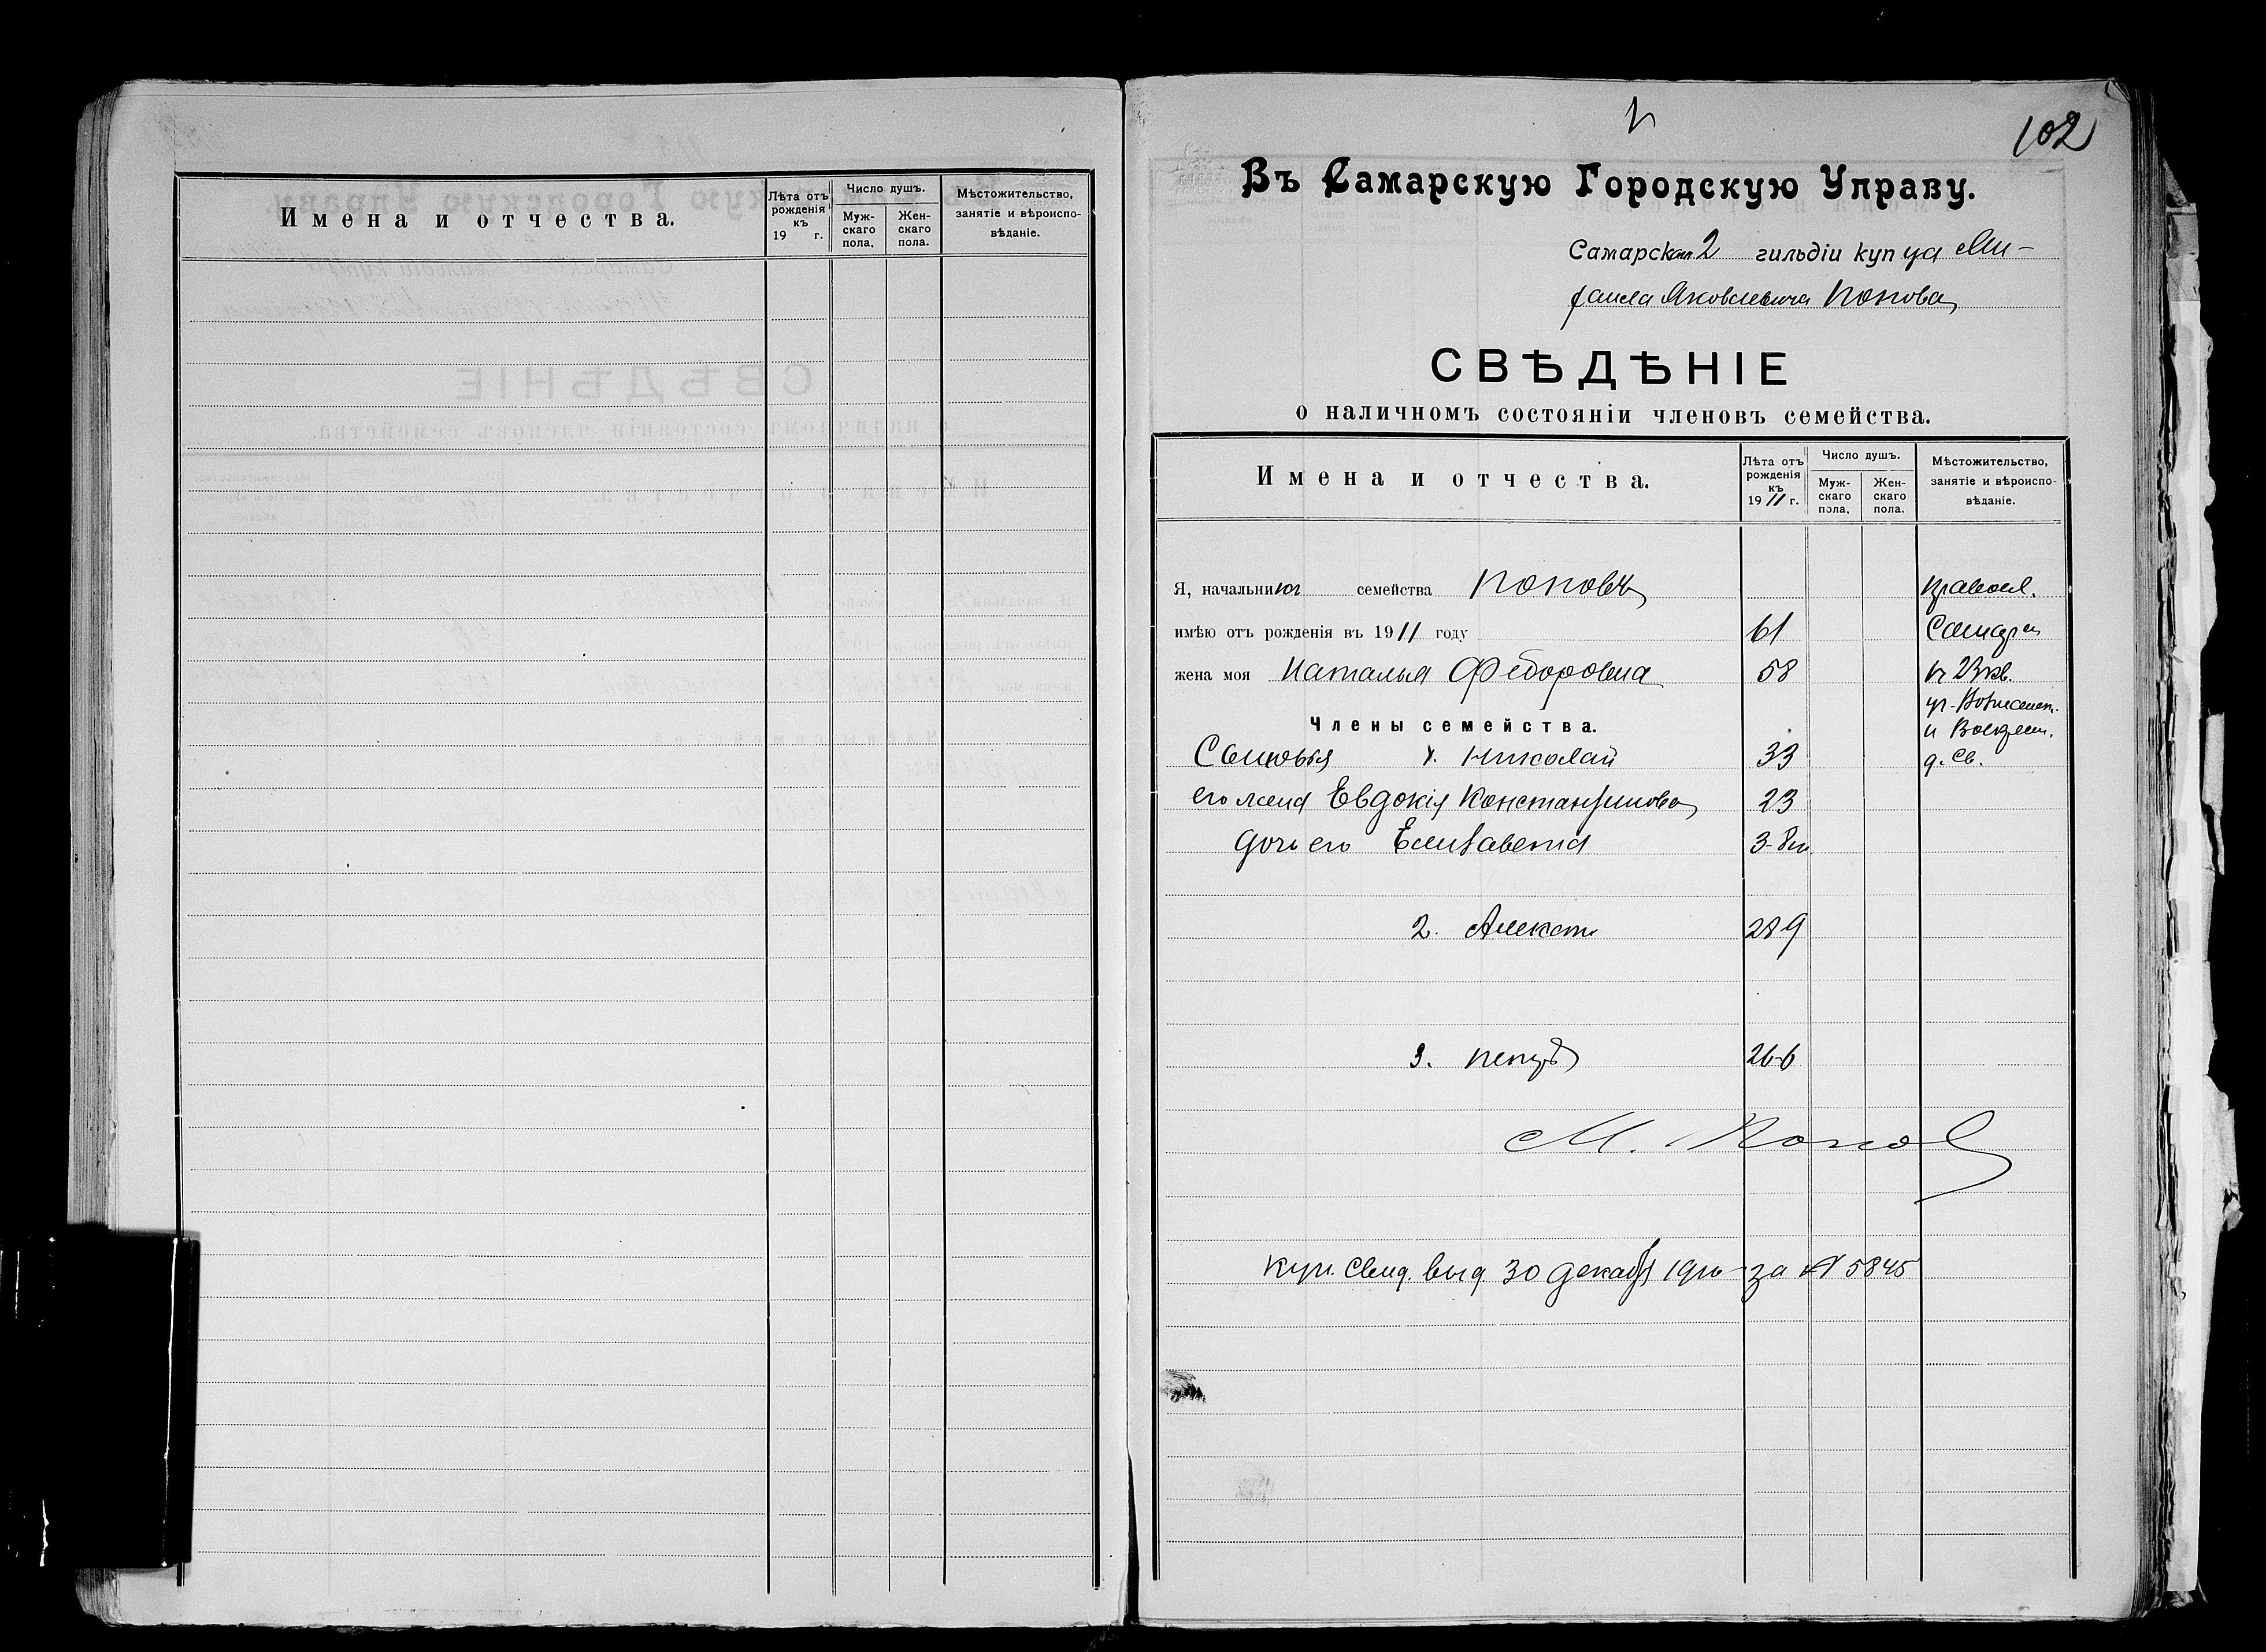 Имена и отчества.
Лѣта отъ рожденія къ 19 г.
Число душъ.
Муж-скаго пола.
Жен-скаго пола.
Мѣстожительство, занятіе и вѣроиспо-вѣданіе.
102
Въ Самарскую Городскую Управу.
Самарскаго 2 гильдіи купца Ми-
хаила Яковлевича Попова
СВѢДѢНІЕ
о наличномъ состояніи членовъ семейства.
Имена и отчества.
Лѣта отъ рожденія къ 1911 г.
Число душъ.
Муж-скаго пола.
Жен-скаго пола.
Мѣстожительство, занятіе и вѣроиспо-вѣданіе.
Я, начальникъ семейства Поповъ правосл.
имѣю отъ рожденія въ 1911 году 61 Самара
жена моя Наталья Федоровна 58 кв.
Члены семейства.
уг. Вознесен.
и Воскресен.
Сыновья 1. Николай 33 д. св.
его жена Евдокія Константинова 23
дочь его Елизавета 3-8м.
2. Алексѣй 28-9
3. Петръ 26-6
М. Попов
Куп. свид. выд. 30 декабря 1910 за № 5845